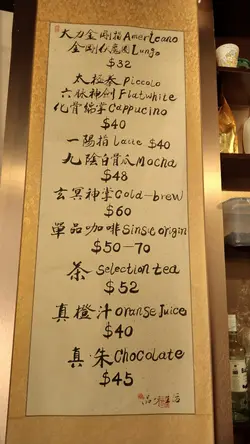 大力金剛指 Americano
金剛伏魔圈 Lungo
$32
太極拳 Piccolo
六脈神劍 Flatwhite
化骨綿掌 Cappucino
$40
一陽指 Latte $40
九陰白骨爪 Mocha
$48
玄冥神掌 Cold-brew
$60
單品咖啡 Single origin
$50-70
茶 Selection tea
$52
真橙汁 orange Juice
$40
真·朱 Chocolate
$45